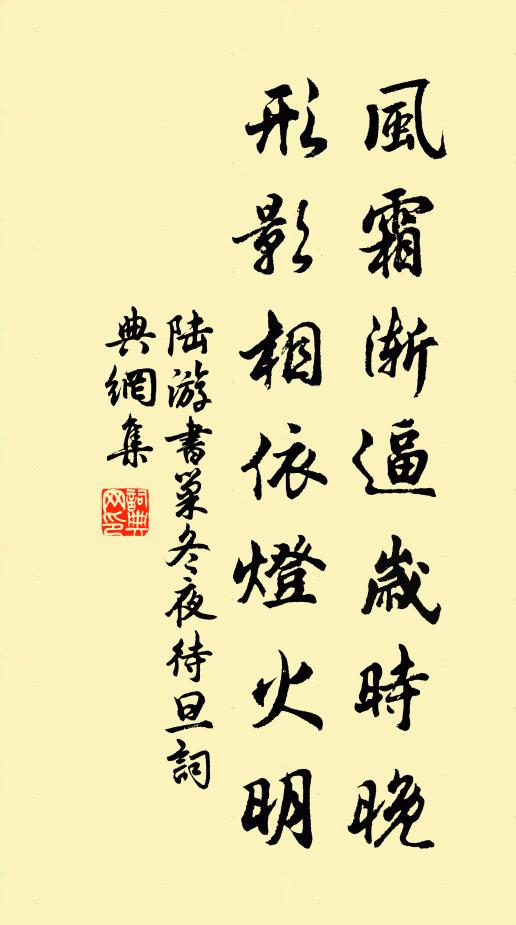 風霜漸逼歲時晚
形影相依燈火明
陆游書巢冬夜待旦詞
典網集
詞典网印